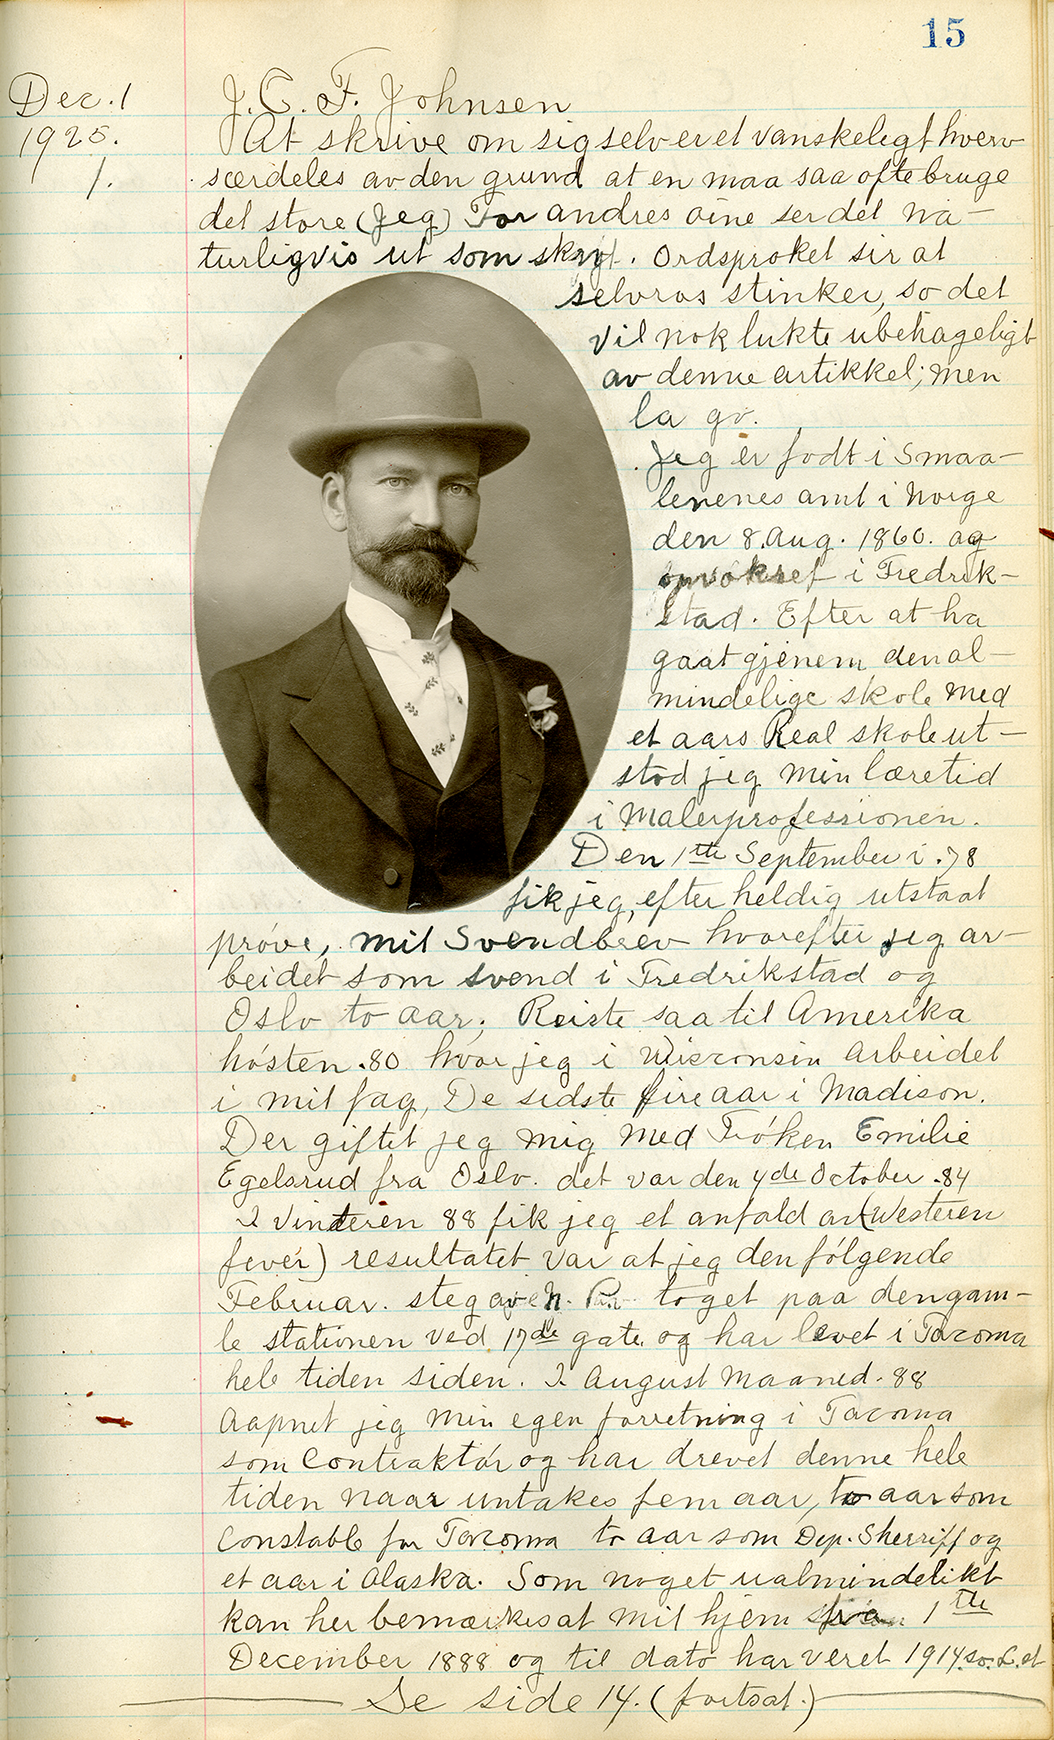 15
Dec. 1
1925.
1.
J. C. F. Johnsen
At skrive om sig selv er et vanskeligt hverv
særdeles av den grund at en maa saa ofte bruge
det store (Jeg) For andres øine ser det na-
turligvis ut som skryt. Ordsproket sir at
selvros stinker, so det
vil nok lukte ubehageligt
av denne artikkel; men
la go.
Jeg er født i Smaa-
lenenes amt i Norge
den 8. Aug. 1860. og
opvokset i Fredrik-
stad. Efter at ha
gaat gjenem den al-
mindelige skole med
et aars Real skole ut-
stod jeg min læretid
i Malerprofessionen.
Den 1ste September i .78
fik jeg, efter heldig utstaat
prøve, mit Svendbrev hvorefter jeg ar-
beidet som svend i Fredrikstad og
Oslo to aar; Reiste saa til Amerika
høsten .80 hvor jeg i Wisconsin arbeidet
i mit fag, De sidste fire aar i Madison.
Der giftet jeg mig med Frøken Emilie
Egelsrud fra Oslo. det var den 4de October .84
I Vinteren 88 fik jeg et anfald av (Western
fever) resultatet var at jeg den følgende
Februar. steg av N. P. toget paa den gam-
le stationen ved 17de gate. og har levet i Tacoma
hele tiden siden. I August Maaned. 88
Aapnet jeg min egen forretning i Tacoma
som Contraktør og har drevet denne hele
tiden naar untakes fem aar, to aar som
Constable for Tacoma to aar som Dep. Sherriff og
et aar i Alaska. Som noget ualmindelikt
kan her bemærkes at mit hjem fra 1ste
December 1888 og til dato har veret 1914 so. L. st
Se side 14. (fortsat.)